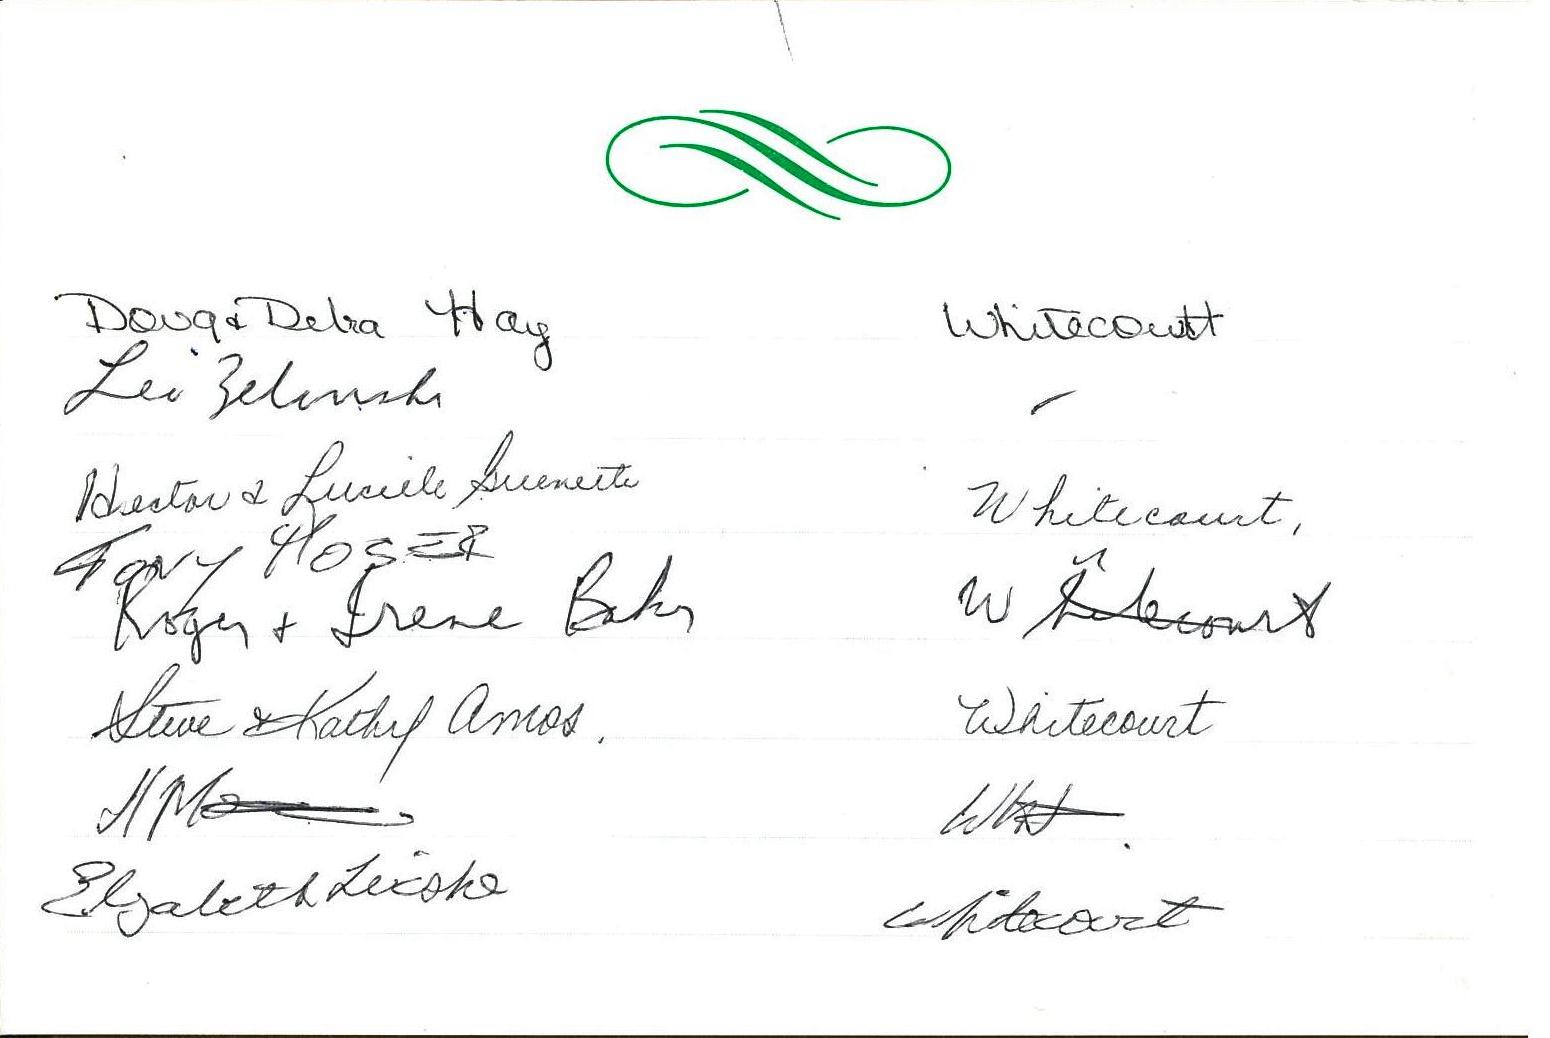 Doug & Debra Hay Whitecourt
Leo Zelinski
Hector & Lucille Guenette Whitecourt,
Tony Hoser
Roger & Irene Baker Whitecourt
Steve & Kathy Amos. Whitecourt
H
Elizabeth Whitecourt